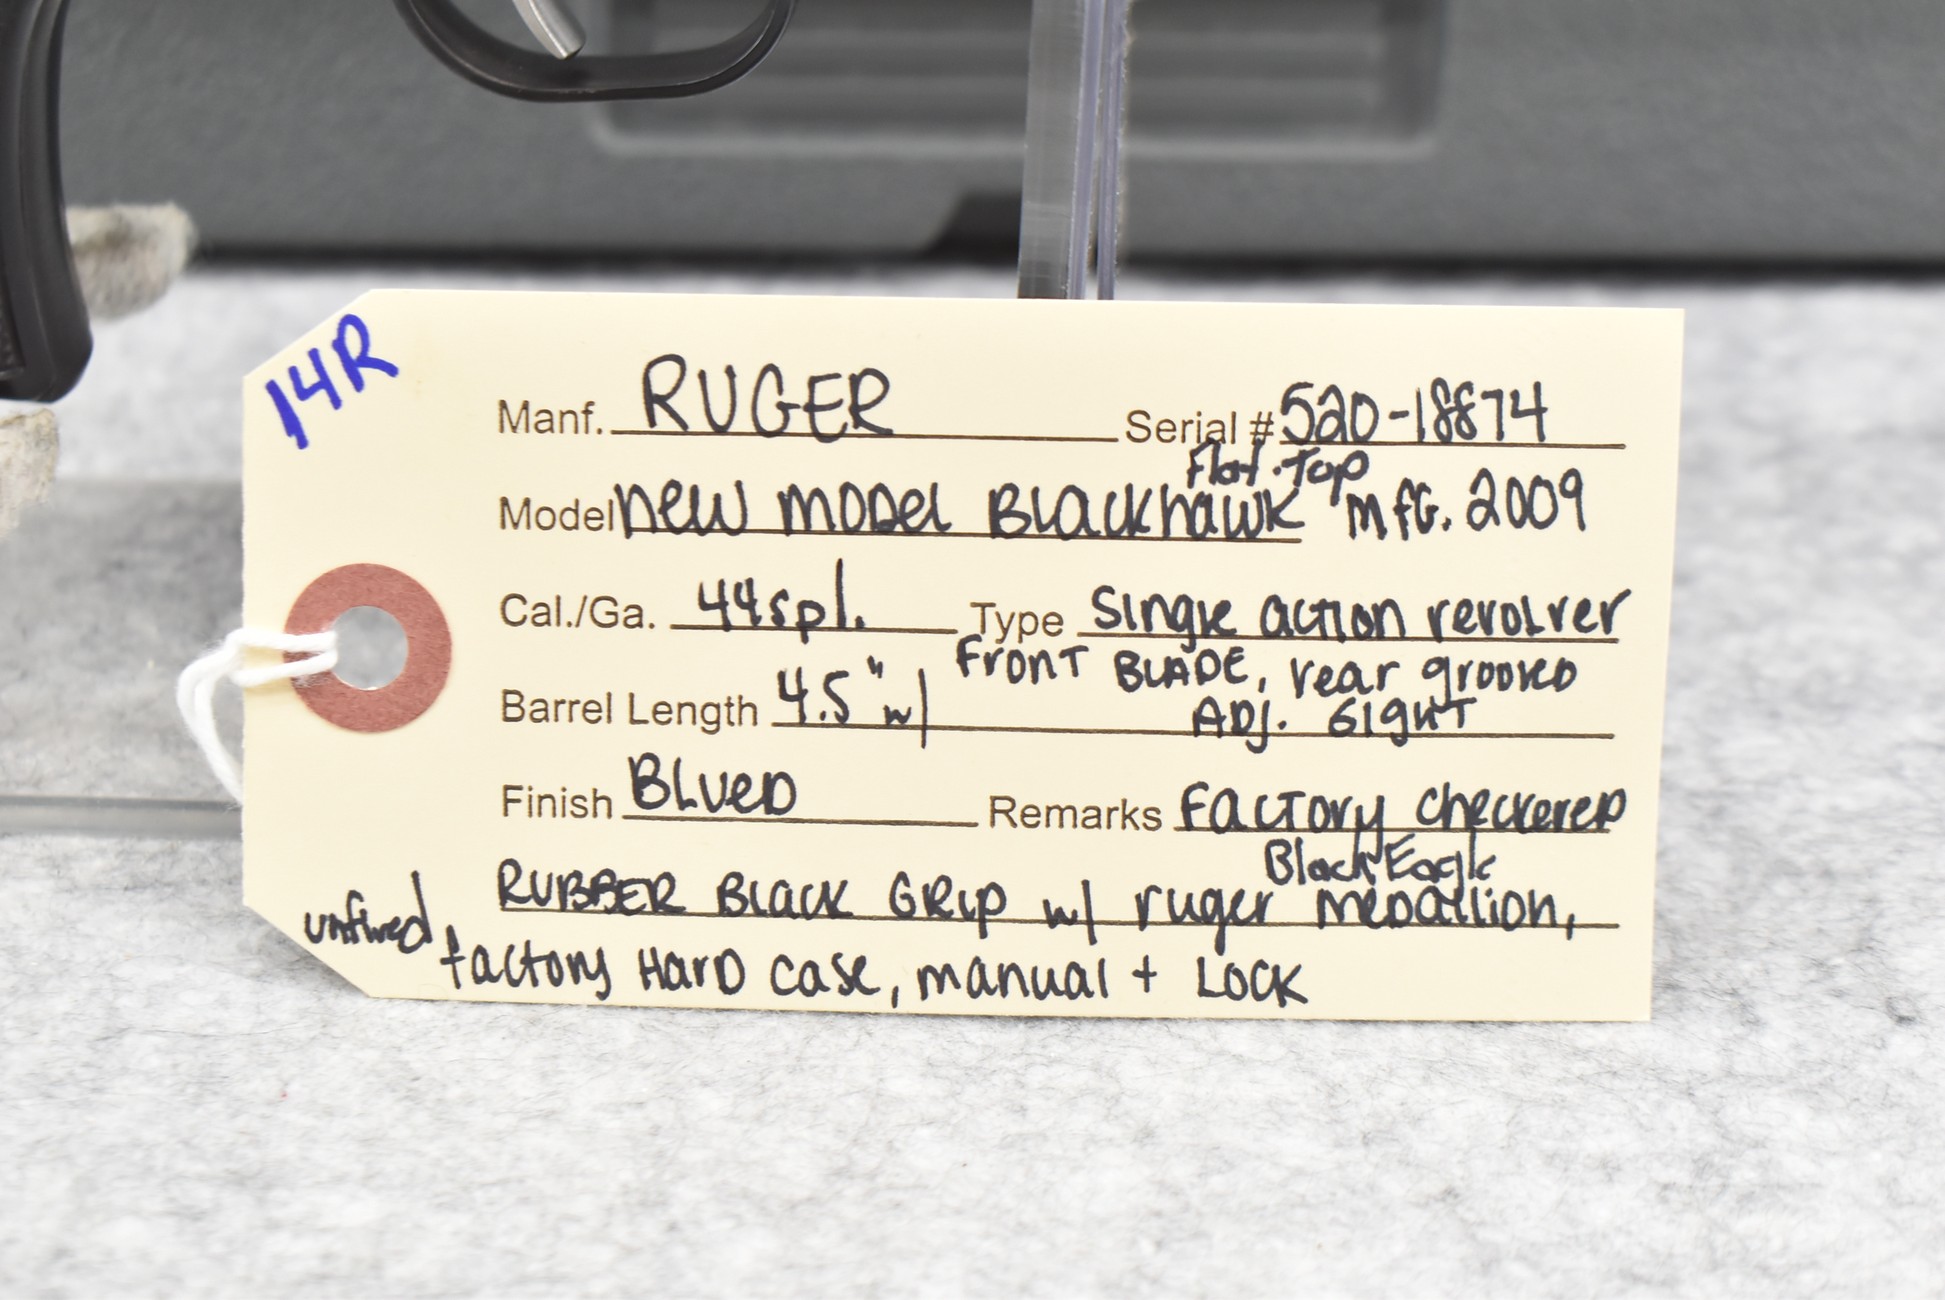 14R
Manf. RUGER Serial # 520-18874
Flat-Top
Model New Model Blackhawk mfg. 2009
Cal./Ga. 44spl. Type Single action revolver
Front BLADE, rear grooved
Barrel Length 4.5" w/ ADJ. SIGHT
Finish BLUED Remarks Factory checkered
Black Eagle
RUBBER BLACK GRIP w/ ruger medallion,
unfired, factory HARD case, manual + LOCK